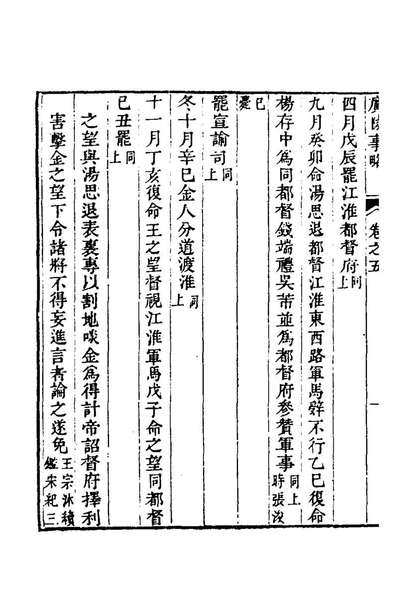 廣陵事略 卷之五 一
四月戊辰罷江淮都督府同上
九月癸卯命湯思退都督江淮東西路軍馬辭不行乙巳復命
楊存中爲同都督錢端禮吳芾並爲都督府參贊軍事同上時張浚
已薨
罷宣諭司同上
冬十月辛巳金人分道渡淮同上
十一月丁亥復命王之望督視江淮軍馬戊子命之望同都督
己丑罷同上
之望與湯思退表裏專以割地啖金爲得計帝詔督府擇利
害擊金之望下令諸將不得妄進言者論之遂免王宗沐續鑑宋紀三